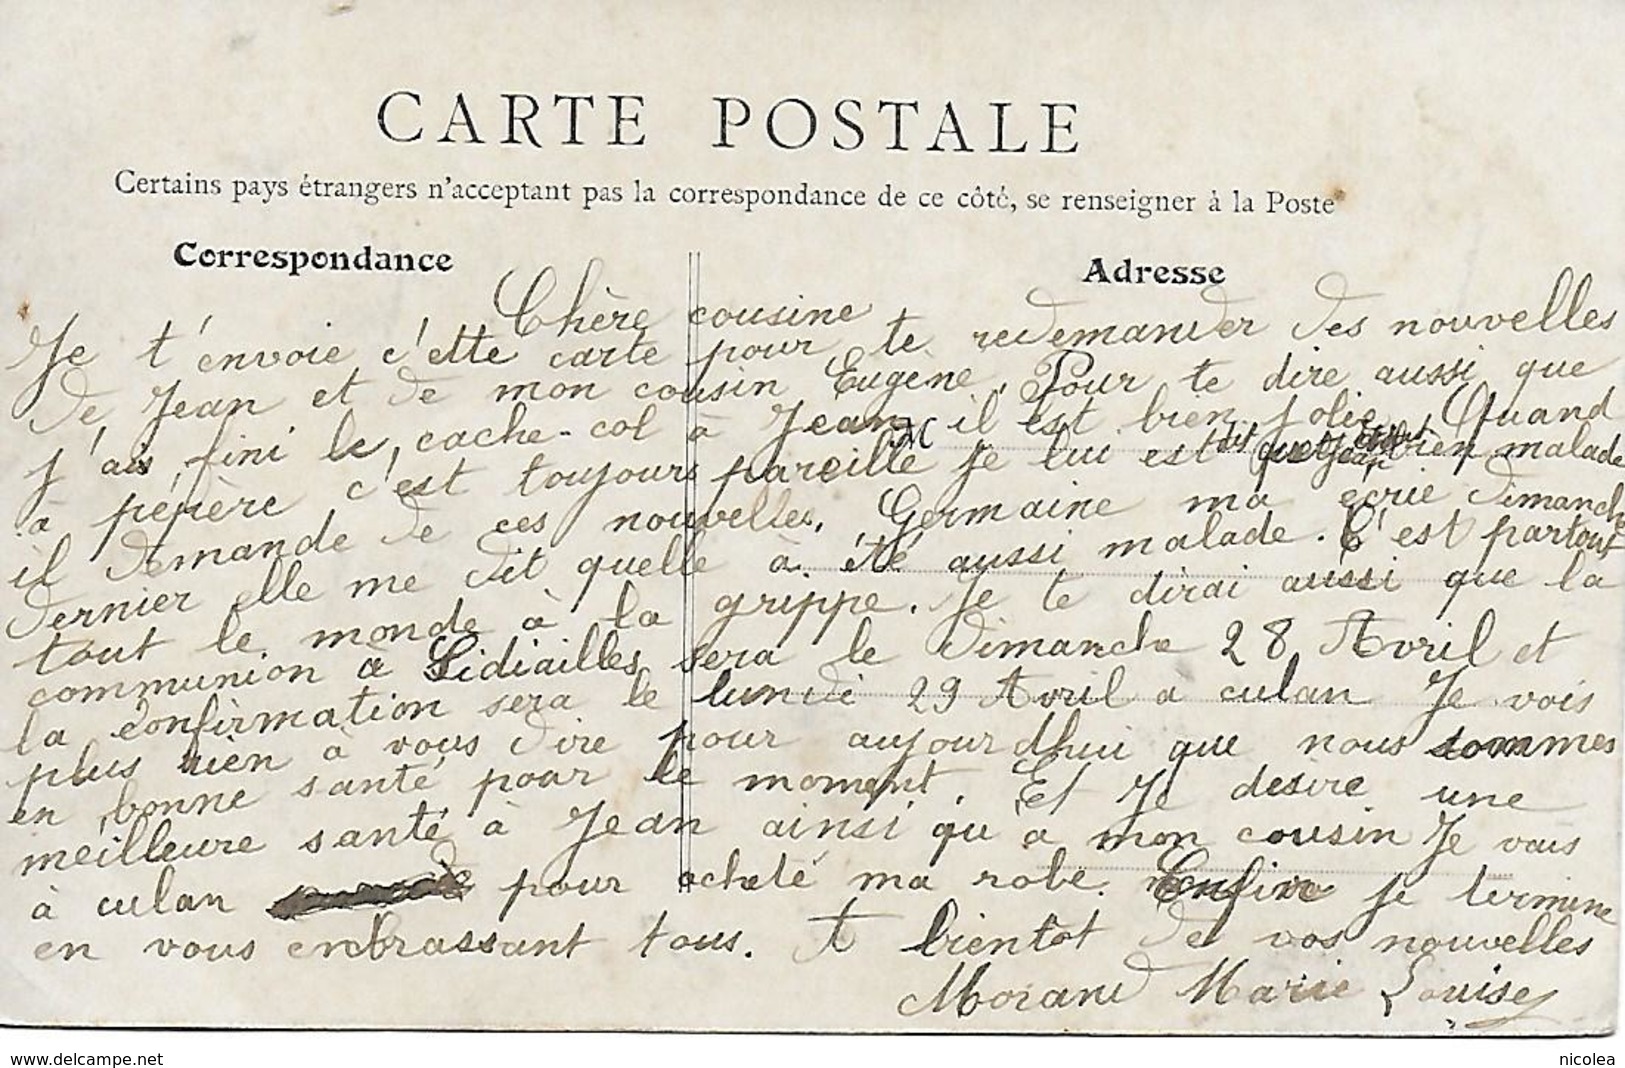 CARTE POSTALE
Certains pays étrangers n'acceptent pas la correspondance de ce côté, se renseigner à la Poste
Correspondance
Adresse
Chère cousine
Je t'envoie c'ette carte pour te redemander des nouvelles
de Jean et de mon cousin Eugene. Pour te dire aussi que
j'ais fini le cache-col à Jean il est bien jolie. Quand
à pépère c'est toujours pareille Je lui est dit que Jean bien malade
il demande de ces nouvelles. Germaine ma ecrie dimanche
dernier elle me dit quelle à été aussi malade. C'est partout
tout le monde à la grippe. Je te dirai aussi que la
communion à Sidiailles sera le dimanche 28 Avril et
la confirmation sera le lundi 29 Avril a culan Je vois
plus rien à vous dire pour aujourdhui que nous sommes
en bonne santé pour le moment. Et Je desire une
meilleure santé à Jean ainsi qu a mon cousin Je vais
à culan pour acheté ma robe. Enfin je termine
en vous enbrassant tous. A bientot de vos nouvelles
Morand Marie Louise
www.delcampe.net
nicolea